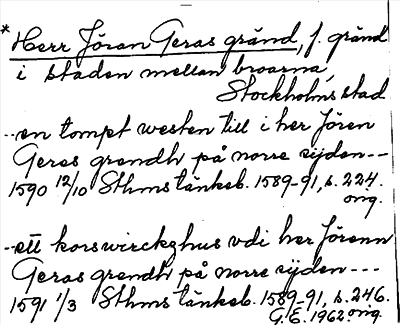 * Herr Jöran Geras gränd, f. gränd
i staden mellan broarna,
Stockholms stad
--en tompt westen till i her Jören
Geras grendh på norre sijden---
1590 12/10 Sthms tänkeb. 1589-91, s. 224.
orig.
--ett korswirckzhus vdi her Jörenn
Geras grendh på norre sijden---
1591 1/3 Sthms tänkeb. 1589-91, s. 246.
G.E. 1962 orig.